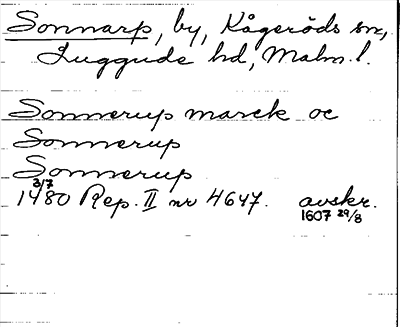 Sonnarp, by, Kågeröds sn,
Luggude hd, Malm. l.
Sonnerup marck oc
Sonnerup
Sonnerup
3/7
1480 Rep. II nr 4647. avskr.
1607 29/8